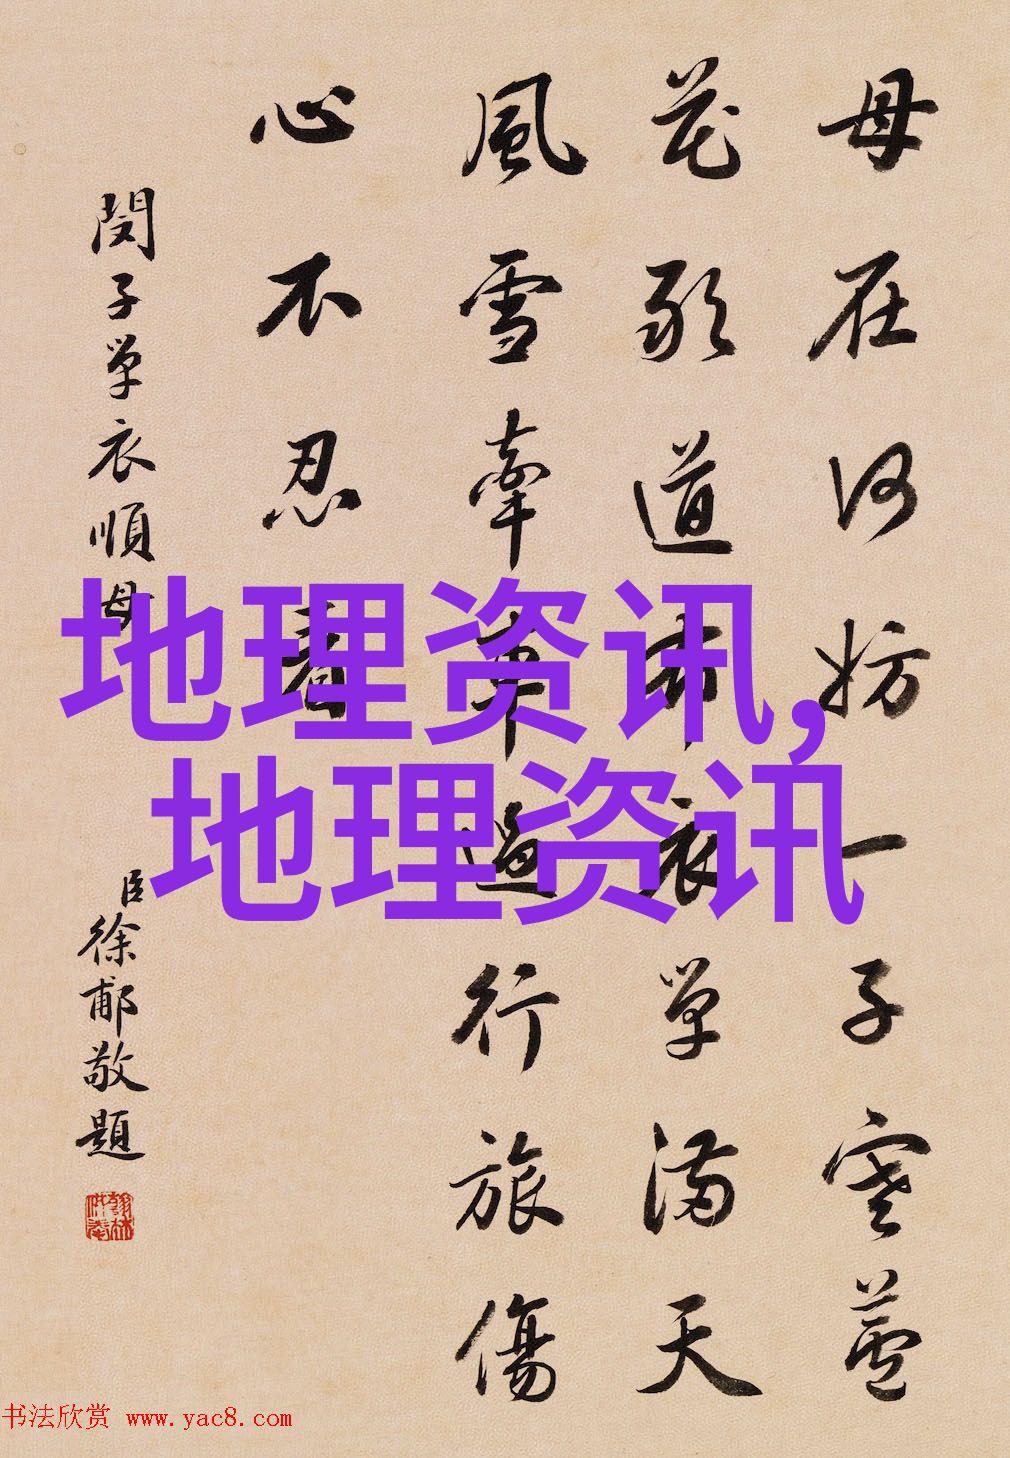 母在何妨一子寒蘆
花敢道布衣單滿天
風雪牽車過行旅傷
心不忍看
閔子單衣順母
臣徐郙敬題
地理资讯,
地理资讯
书法欣赏 www.yac8.com